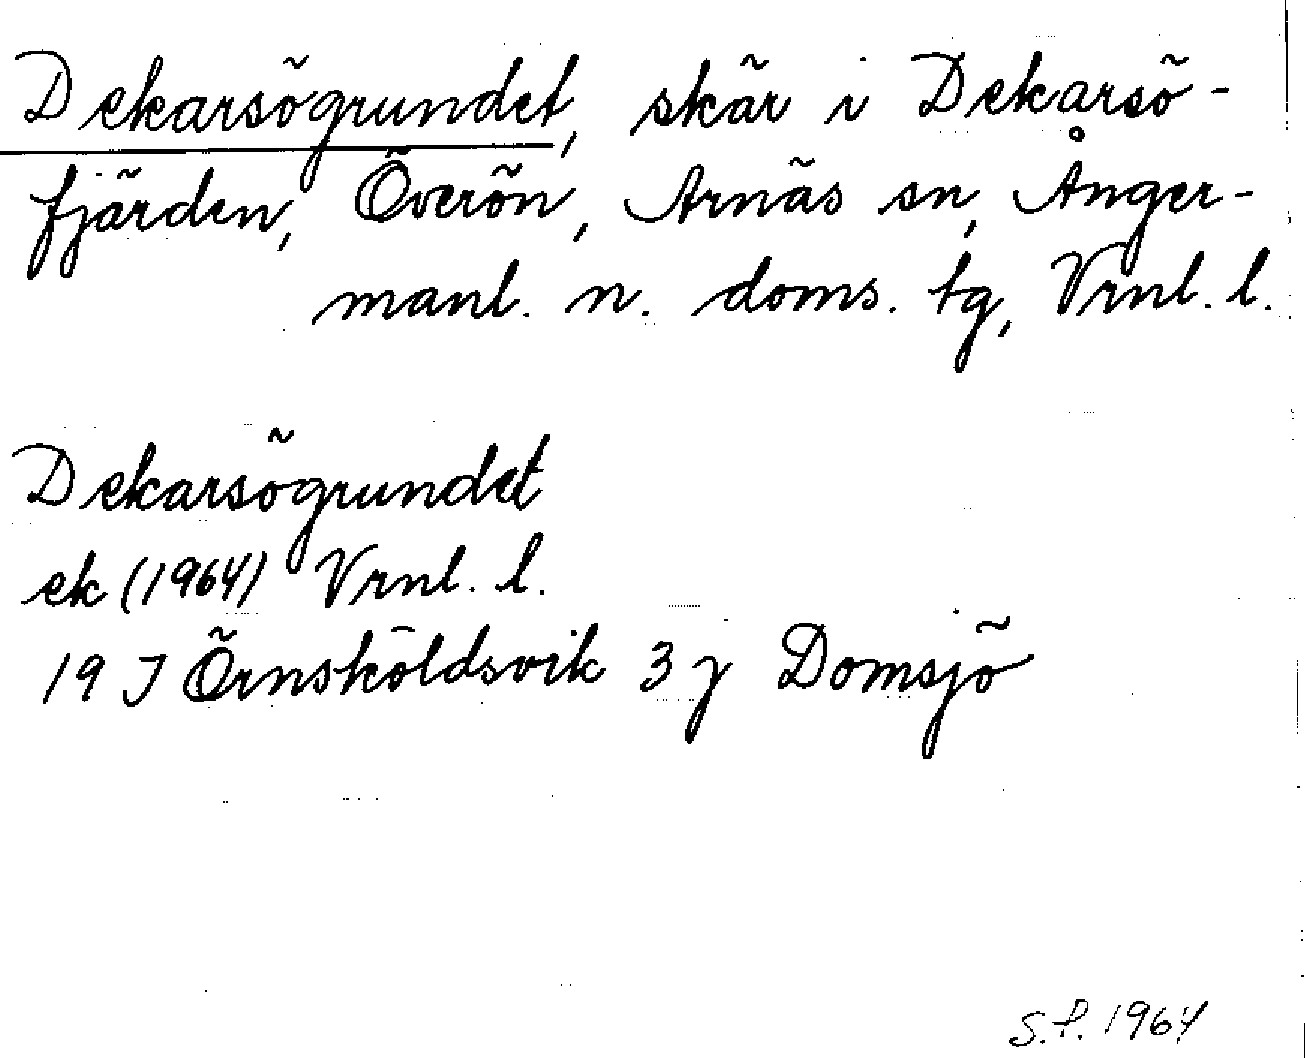 Dekarsögrundet, skär i Dekarsö-
fjärden, Överön, Arnäs sn, Ånger-
manl. n. doms. tg, Vrnl. l.
Dekarsögrundet
ek (1964) Vrnl. l.
19 J Örnsköldsvik 3 j Domsjö
S.P. 1964